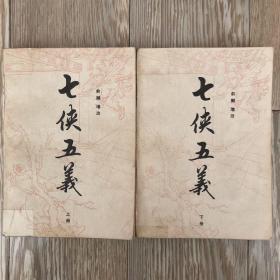 七侠五義
俞樾 增註
上册
七侠五義
俞樾 增註
下册